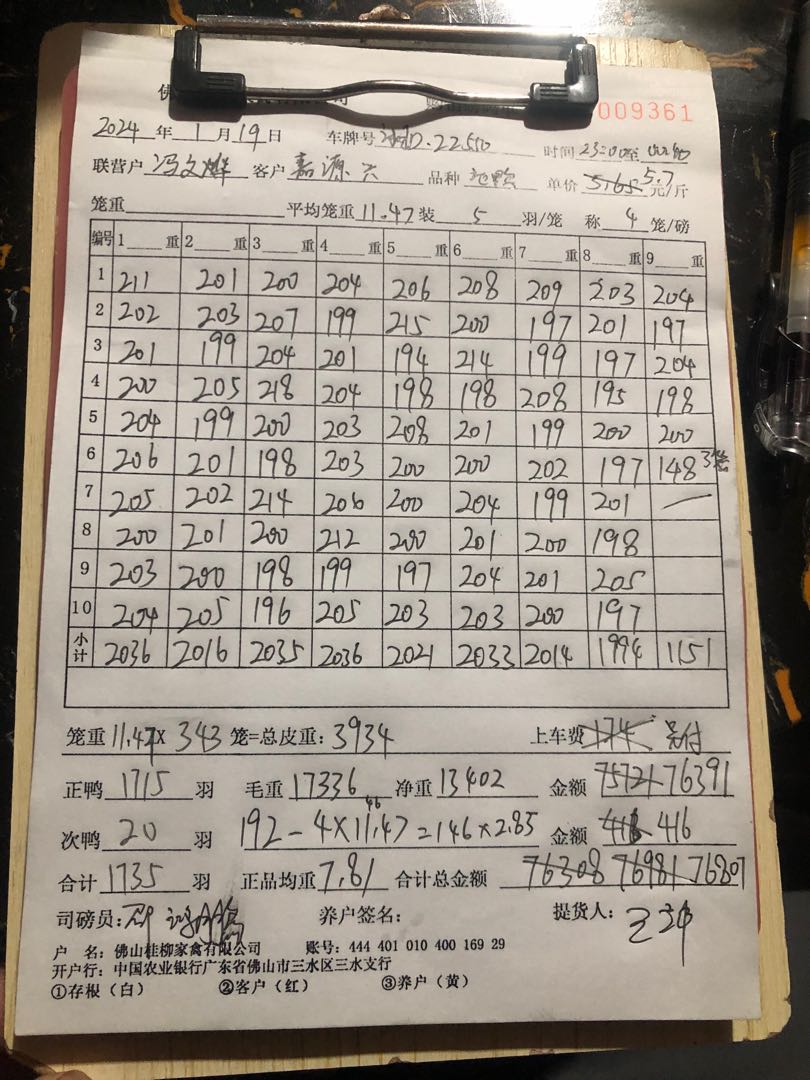 佛
009361
2024 年 1 月 19 日 车牌号 22550 时间 23:00 至
联营户 冯文烨 客户 嘉源兴 品种 单价 5.65 5.7 元/斤
笼重 平均笼重 11.47 装 5 羽/笼 称 4 笼/磅
编号 1 重 2 重 3 重 4 重 5 重 6 重 7 重 8 重 9 重
1 211 201 200 204 206 208 209 203 204
2 202 203 207 199 215 200 197 201 197
3 201 199 204 201 194 214 199 197 204
4 200 205 218 204 198 198 208 195 198
5 204 199 200 203 208 201 199 200 200
6 206 201 198 203 200 200 202 197 148 3笼
7 205 202 214 206 200 204 199 201 —
8 200 201 200 212 200 201 200 198
9 203 200 198 199 197 204 201 205
10 204 205 196 205 203 203 200 197
小计 2036 2016 2035 2036 2021 2033 2014 1994 1151
笼重 11.47 X 343 笼=总皮重: 3934 上车费 174 另付
正鸭 1715 羽 毛重 17336 净重 13402 金额 75721 76391
次鸭 20 羽 192 - 4 X 11.47 = 146 46 X 2.85 金额 418 416
合计 1735 羽 正品均重 7.81 合计总金额 76308 76981 76807
司磅员: 养户签名: 提货人:
户 名: 佛山桂柳家禽有限公司 账号: 444 401 010 400 169 29
开户行: 中国农业银行广东省佛山市三水区三水支行
①存根(白) ②客户(红) ③养户(黄)